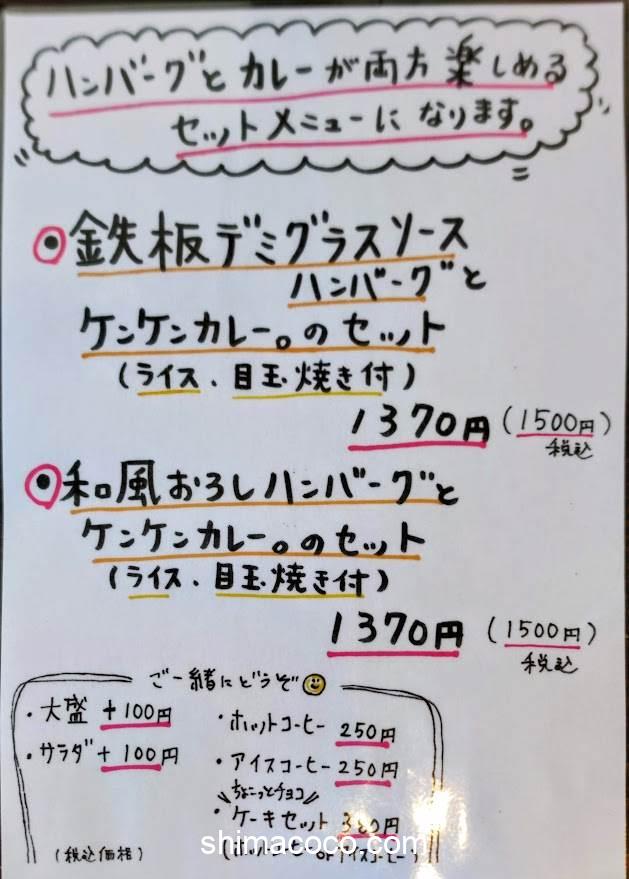 ハンバーグとカレーが両方楽しめる
セットメニューになります。
鉄板デミグラスソース
ハンバーグと
ケンケンカレー。のセット
(ライス、目玉焼き付)
1370円(1500円)
税込
和風おろしハンバーグと
ケンケンカレー。のセット
(ライス、目玉焼き付)
1370円(1500円)
税込
ご一緒にどうぞ
・大盛 +100円
・サラダ +100円
(税込価格)
・ホットコーヒー 250円
・アイスコーヒー 250円
ちょこっとチョコ
・ケーキセット 380円
(ホットコーヒーorアイスコーヒー)
shimacoco.com